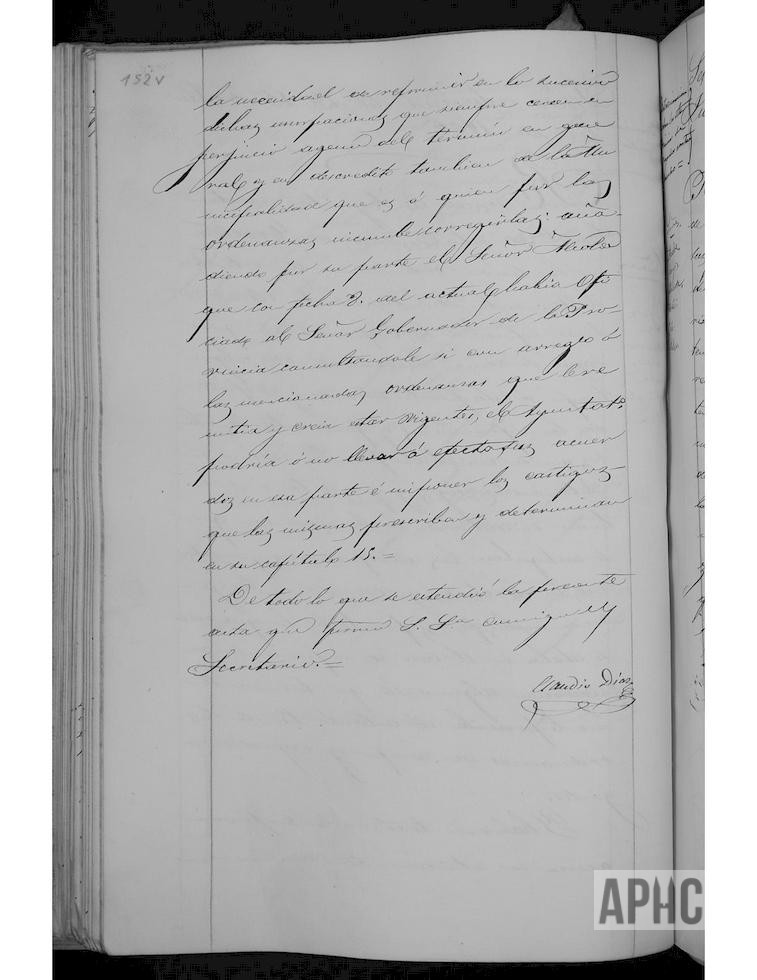 152v
la necesidad de reprimir en lo sucesivo
dichas usurpaciones que siempre ceden en
perjuicio ageno del termino en gene
ral y en descredito tambien de la Mu
nicipalidad que es á quien por las
ordenanzas incumbe corregirlas: aña-
diendo por su parte el Señor Alcalde
que con fecha 3. del actual habia ofi
ciado al Señor Gobernador de la Pro-
vincia consultandole si con arreglo á
las mencionadas ordenanzas que le re
mitia y creia estar vigentes, el Ayuntatº
podria ó no llevar á efecto sus acuer
dos en esa parte é imponer los castigos
que las mismas prescriben y determinan
en su capítulo 15.=
De todo lo que se estendió la presente
acta que firma S. Sª conmigo el
Secretario.=
Claudio Diaz
APHC